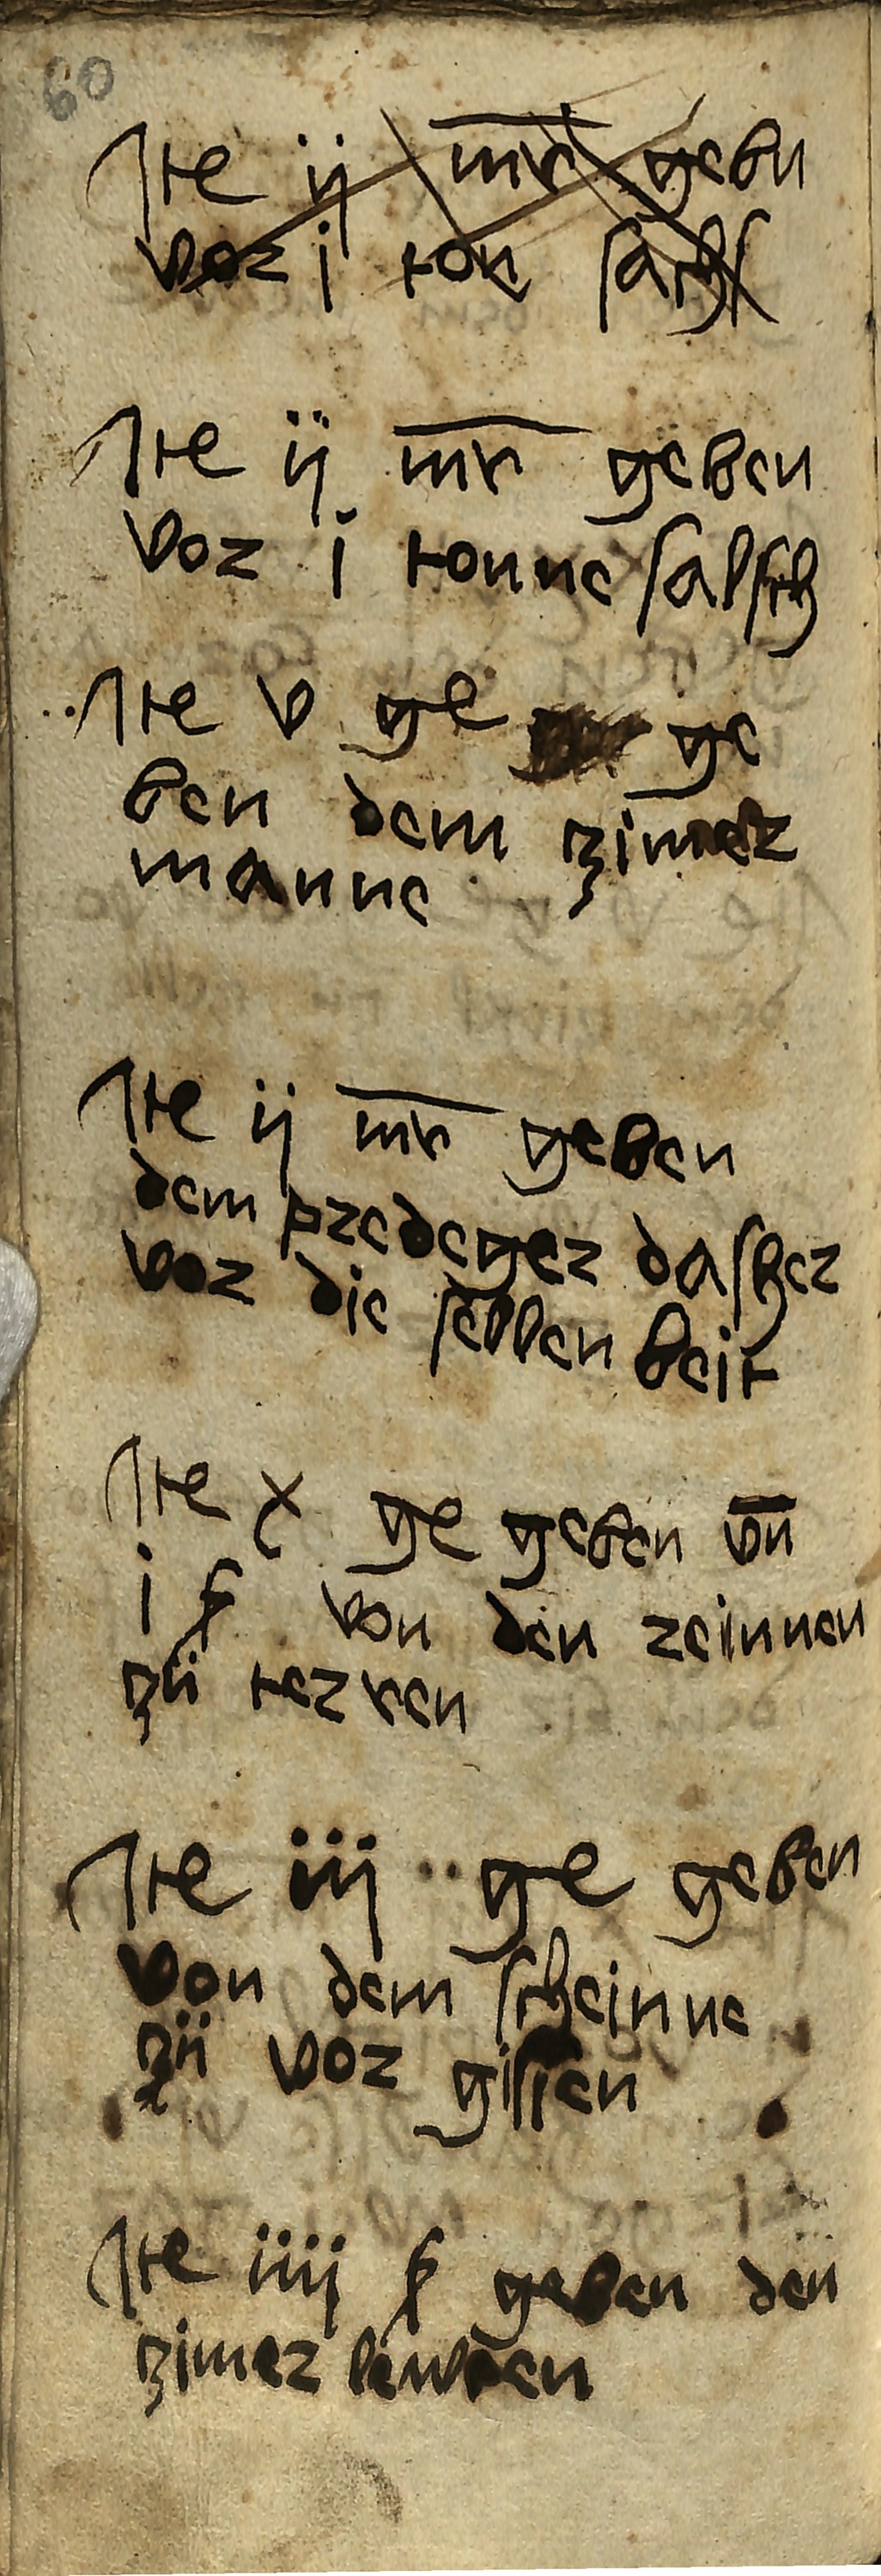 60
Ite ij mr gebn
vor j ton sachs
Ite ij mr geben
vor j tonne salsch
Ite v ge ge
ben dem zimer
manne
Ite ij mr geben
dem predeger dasher
vor die selben heit
Ite x ge geben vn
j β von den reinnen
zü tercen
Ite iij ge geben
von dem scheinne
zü vor gissen
Ite iiij β geben den
zimer lewten